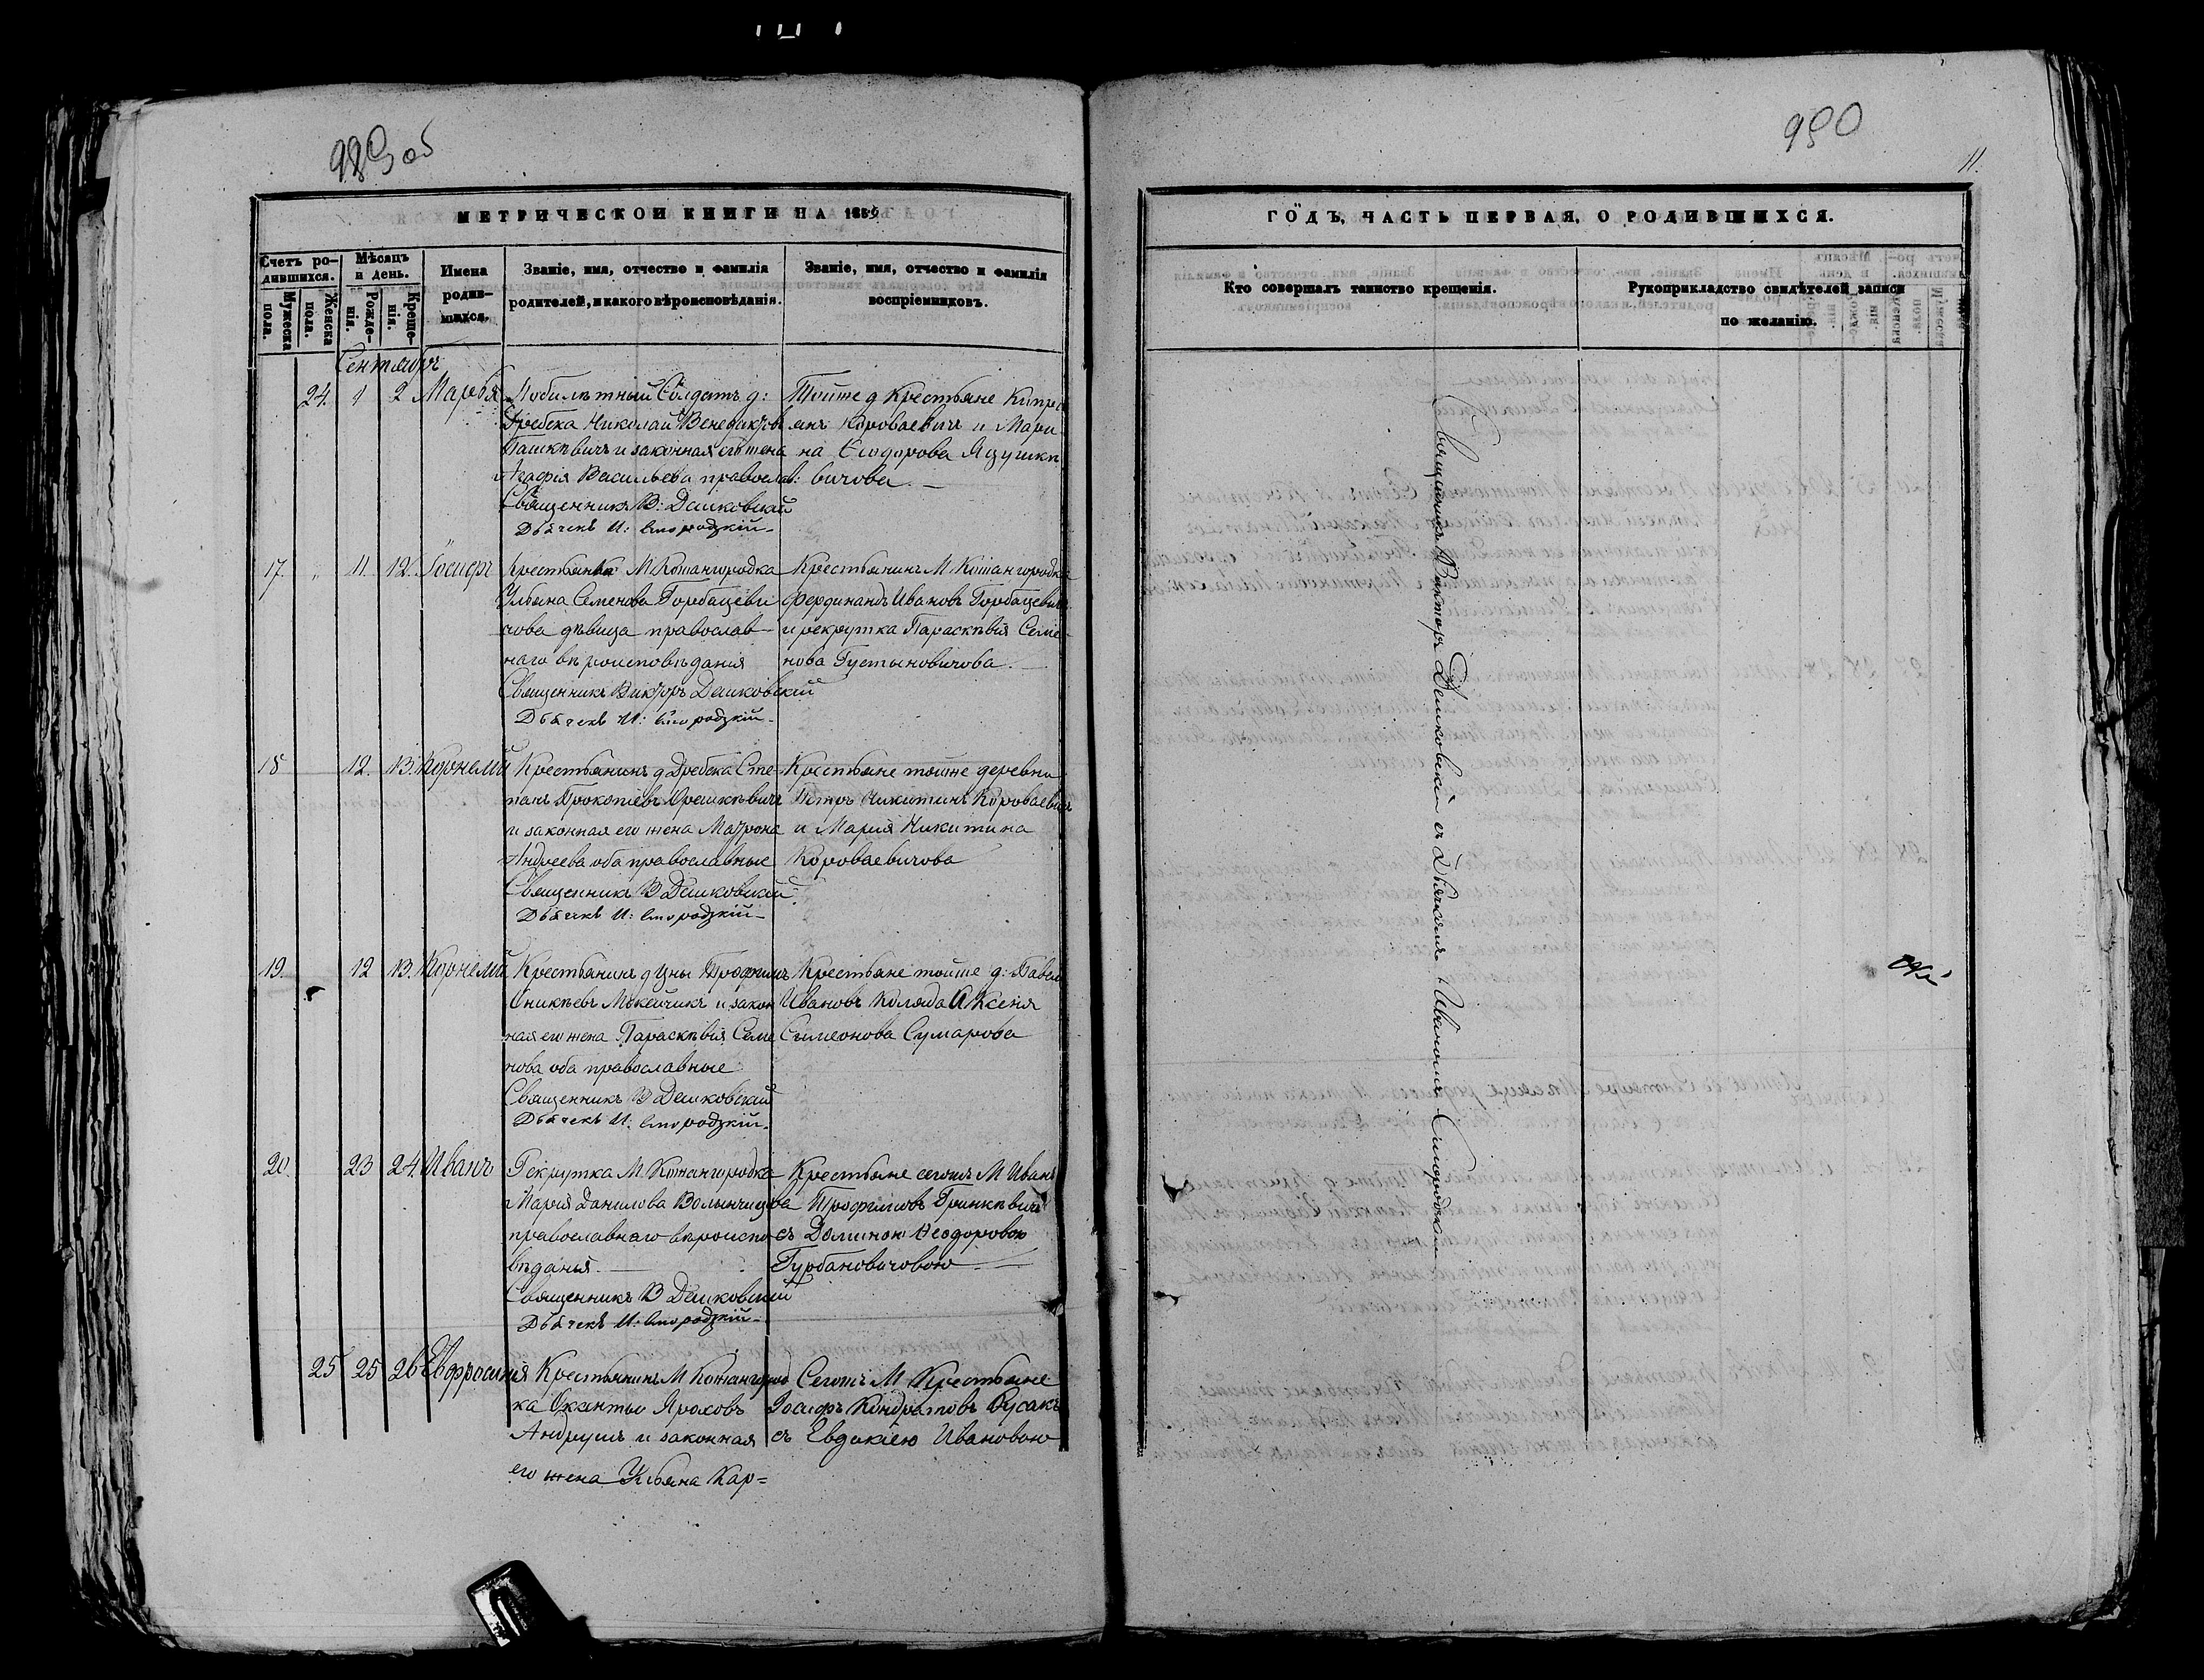 989 об
МЕТРИЧЕСКОЙ КНИГИ НА 1859
Счетъ ро-
дившихся.
Мужеска пола.
Женска пола.
Мѣсяцъ и день.
Рожде-
нія.
Креще-
нія.
Имена
родив-
шихся.
Званіе, имя, отчество и фамилія
родителей, и какого вѣроисповѣданія.
Званіе, имя, отчество и фамилія
воспріемниковъ.
Сентябрь
24. 1 2 Марѳа
Безбилѣтный Солдатъ д:
Дребска Николай Венедиктовъ
Пашкѣвичъ и законная его жена
Агафія Васильева православ:
Священникъ В: Дешковскій
Дьячекъ И: Смородзкій
Тойже д Крестьяне Кипрі
янъ Короваевичъ и Мари
на Ѳеодорова Яцушкѣ
вичова
17. 11. 12. Іосифъ
Крестьянка М Кожангородка
Ульяна Семенова Горбацеви
чова дѣвица православ-
наго вѣроисповѣданія
Священникъ Викторъ Дешковскій
Дьячекъ И: Смородзкій
Крестьянинъ М Кожангородка
Фердинандъ Ивановъ Горбацевичъ
и рекрутка Параскѣвія Семе
нова Густыновичова
18 12. 13. Корнелій
Крестьянинъ д Дребска Сте-
панъ Прокопіевъ Орешкѣвичъ
и законная его жена Матрона
Андреева оба православные
Священникъ В Дешковскій
Дьячекъ И: Смородзкій
Крестьяне тойже деревни
Петръ Никитинъ Короваевичъ
и Марія Никитина
Короваевичова
19. 12 13. Корнелій
Крестьянинъ д Цны Трофимъ
Оникѣевъ Мокейчикъ и закон
ная его жена Параскѣвія Семе
нова оба православные
Священникъ В Дешковскій
Дьячекъ И: Смородзкій
Крестьяне тойже д: Павелъ
Ивановъ Коляда и Ксенія
Сѵмеонова Сумарова
20. 23 24. Иванъ
Рекрутка М Кожангородка
Марія Данилова Волынчицова
православнаго вѣроиспо
вѣданія
Священникъ В Дешковскій
Дьячекъ И: Смородзкій
Крестьяне сегожъ М Иванъ
Трофимовъ Гринкѣвичъ
съ Доминою Ѳеодоровою
Гурбановичовою
25 25 26 Евфросинія
Крестьянинъ М Кожангород
ка Ѳкантьи Яроховъ
Андрушъ и законная
его жена Ульяна Кар=
Сегожъ М Крестьяне
Іосифъ Кондратовъ Русакъ
съ Евдокіею Ивановою
990
11.
ГОДЪ, ЧАСТЬ ПЕРВАЯ, О РОДИВШИХСЯ.
Кто совершалъ таинство крещенія.
Рукоприкладство свидѣтелей записи
по желанію.
Священникъ Викторъ Дешковскій съ Дьячкомъ Иваномъ Смородзкимъ